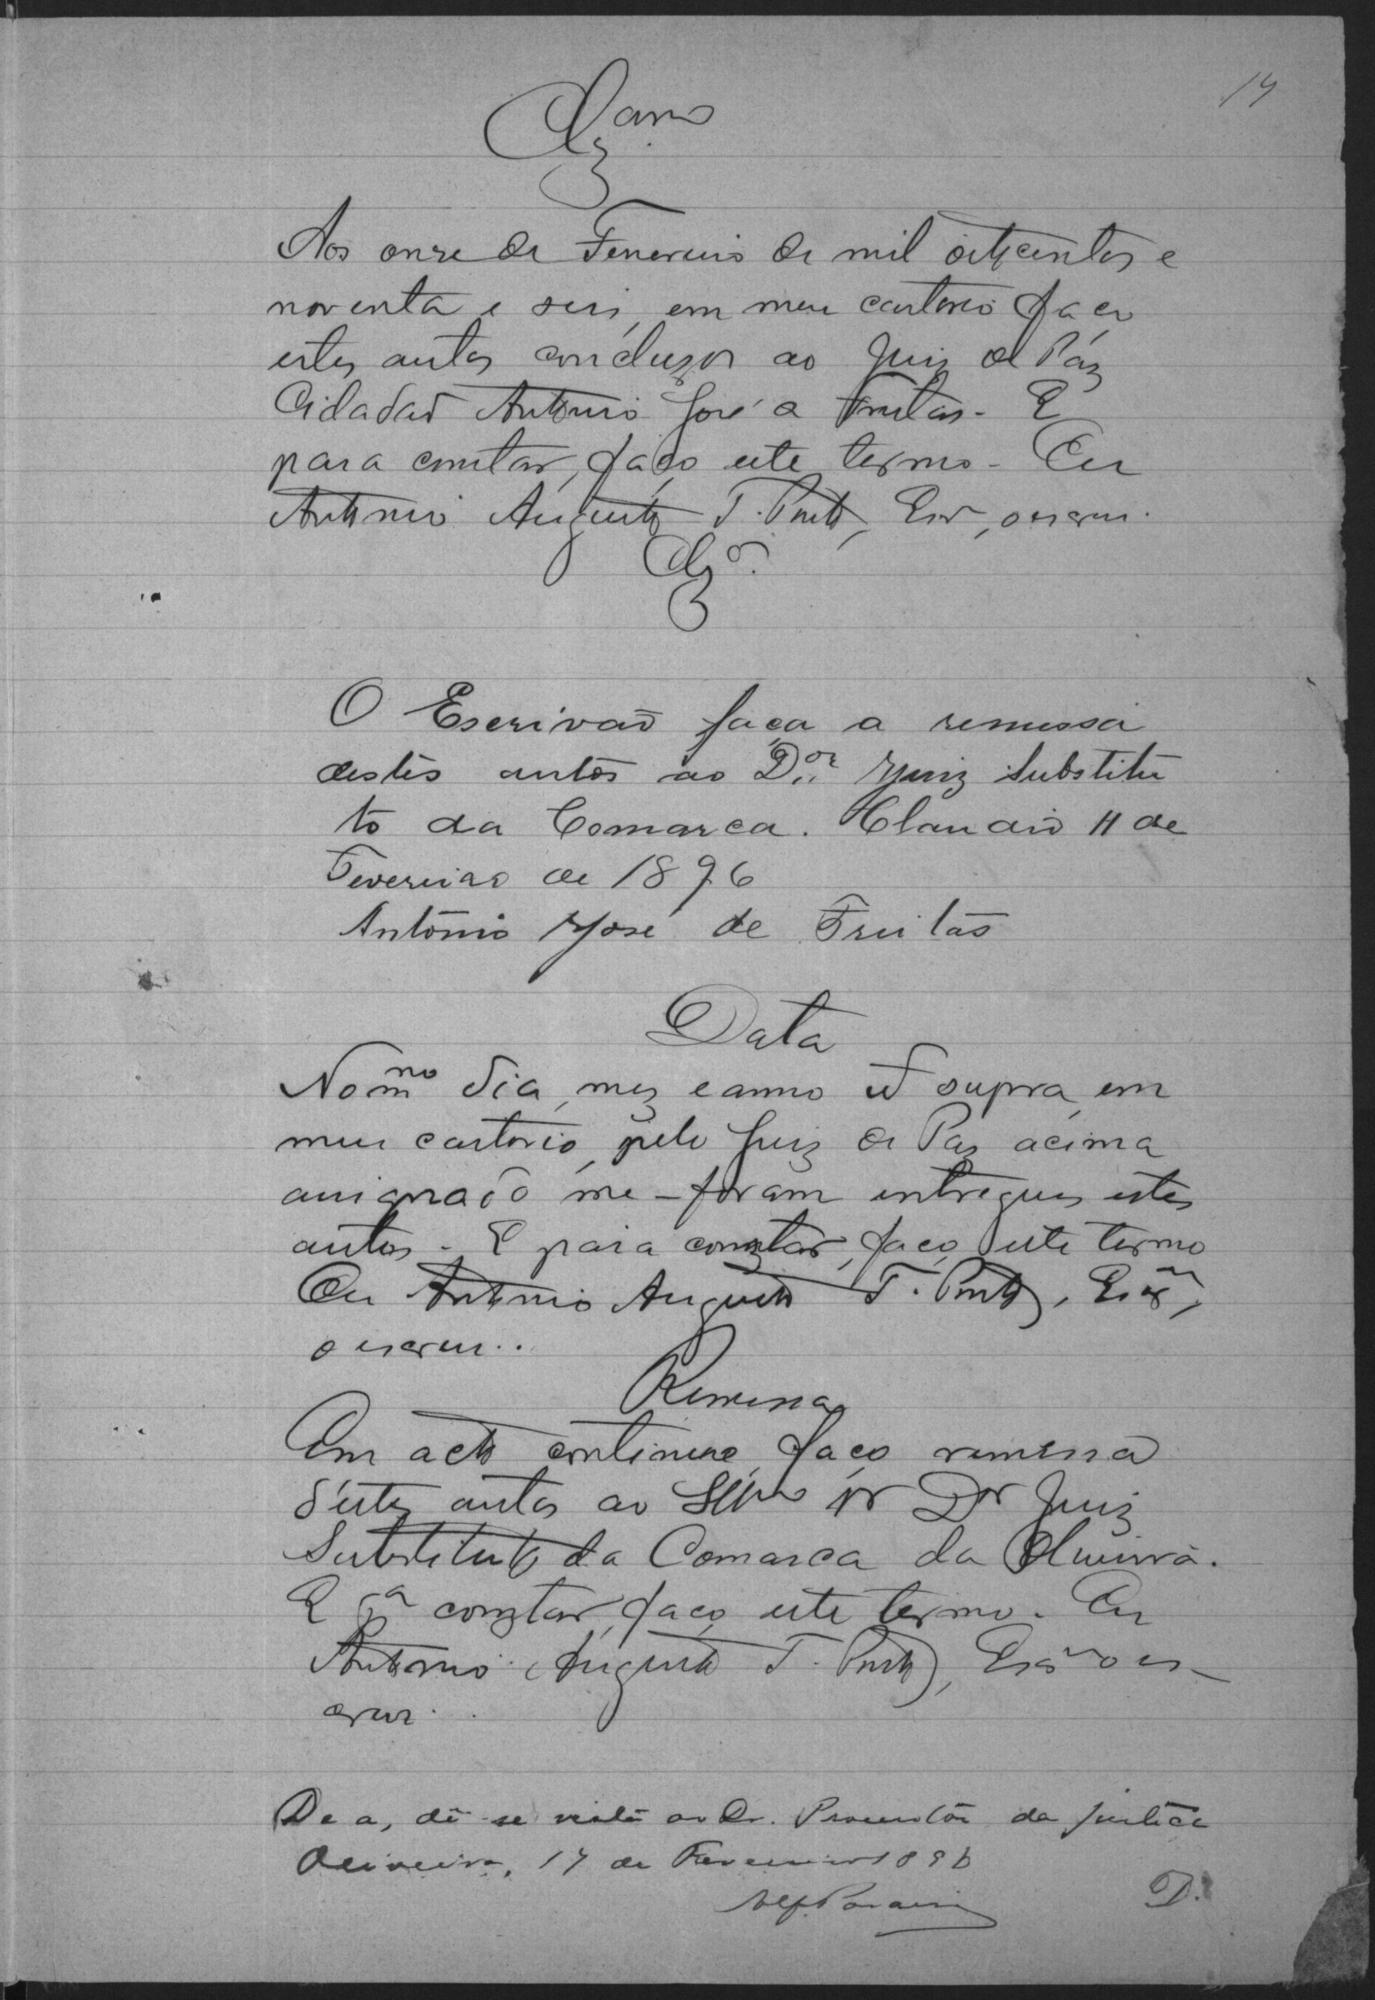 14
Clzam
Aos onze de Fevereiro de mil oitocentos e
noventa e seis, em meu cartorio faço
estes autos concluzos ao Juiz de Paz
Cidadaõ Antonio José de Freitas. E
para constar, faço este termo. Eu
Antonio Augusto T. Porto, Esc, o escrevi.
Clzo.
O Escrivaõ faça a remessa
destes autos ao Dor Juiz Substitu
to da Comarca. Claudio 11 de
Fevereiro de 1896
Antonio José de Freitas
Data
No mmo dia, mez e anno ut supra, em
meu cartorio, pelo Juiz de Paz acima
assignado me-foram entregues estes
autos. E para constar, faço este termo
Eu Antonio Augusto T. Porto, Escam,
o escrevi.
Remessa
Em acto continuo, faço remessa
d'estes autos ao Illmo Sr Dr Juiz
Substituto da Comarca da Oliveira.
E pa constar, faço este termo. Eu
Antonio Augusto T. Porto, Escam o es-
crevi.
De a, dê-se vista ao Dr. Promotor da Justiça
Oliveira, 17 de Fevereiro 1896
D.